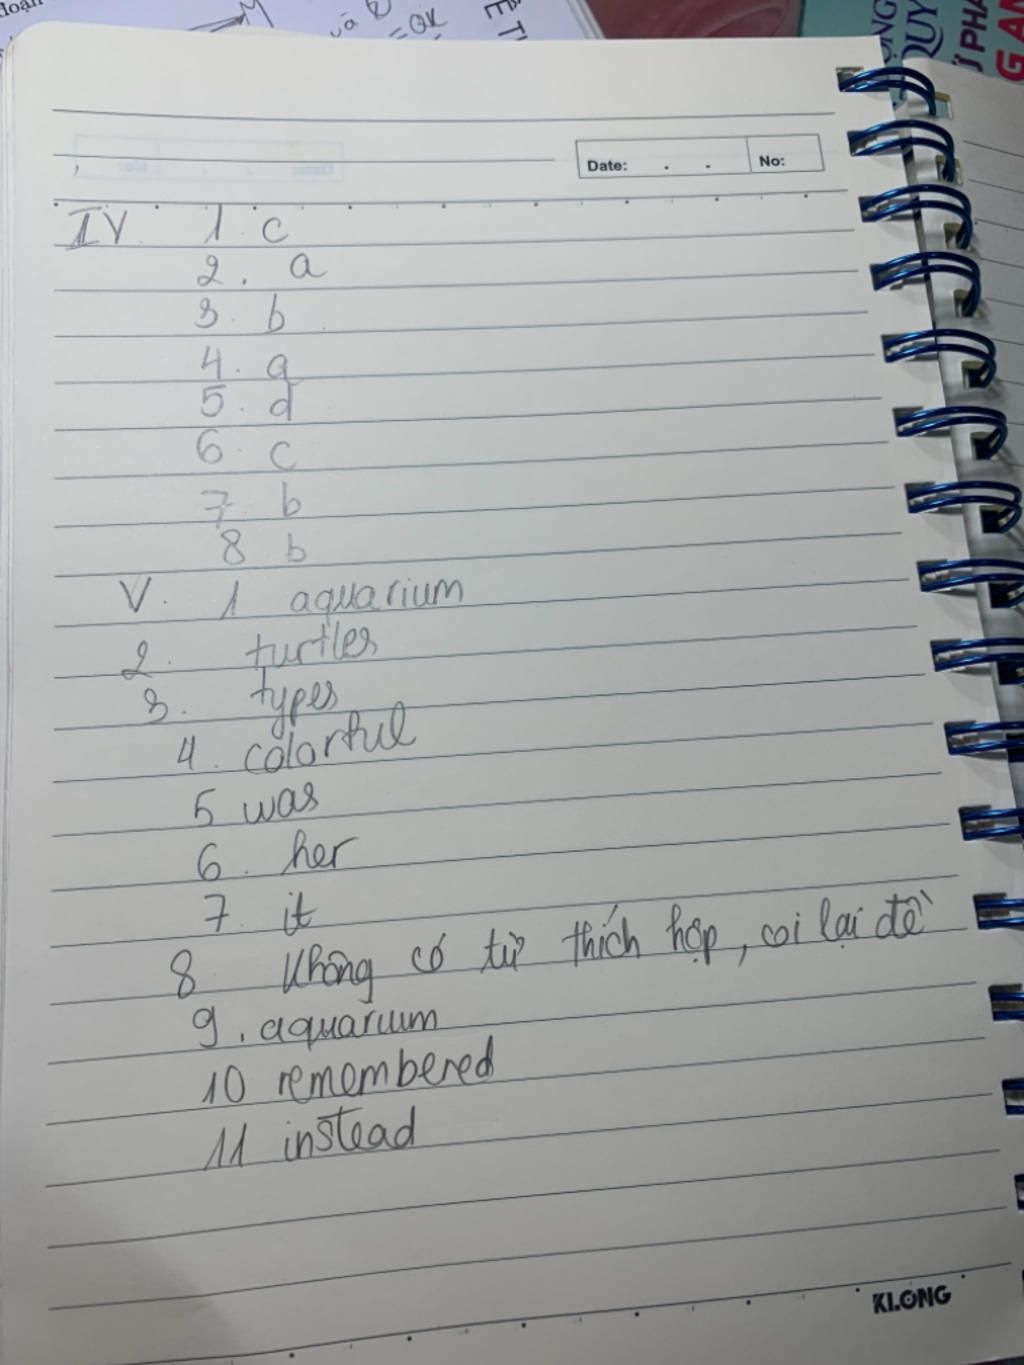 Date: . . No:
IV. 1. c
2. a
3. b
4. a
5. d
6. c
7. b
8 b
V. 1 aquarium
2. turtles
3. types
4. colorful
5 was
6. her
7. it
8 Không có từ thích hợp, coi lại đề
9. aquarium
10 remembered
11 instead
KLONG